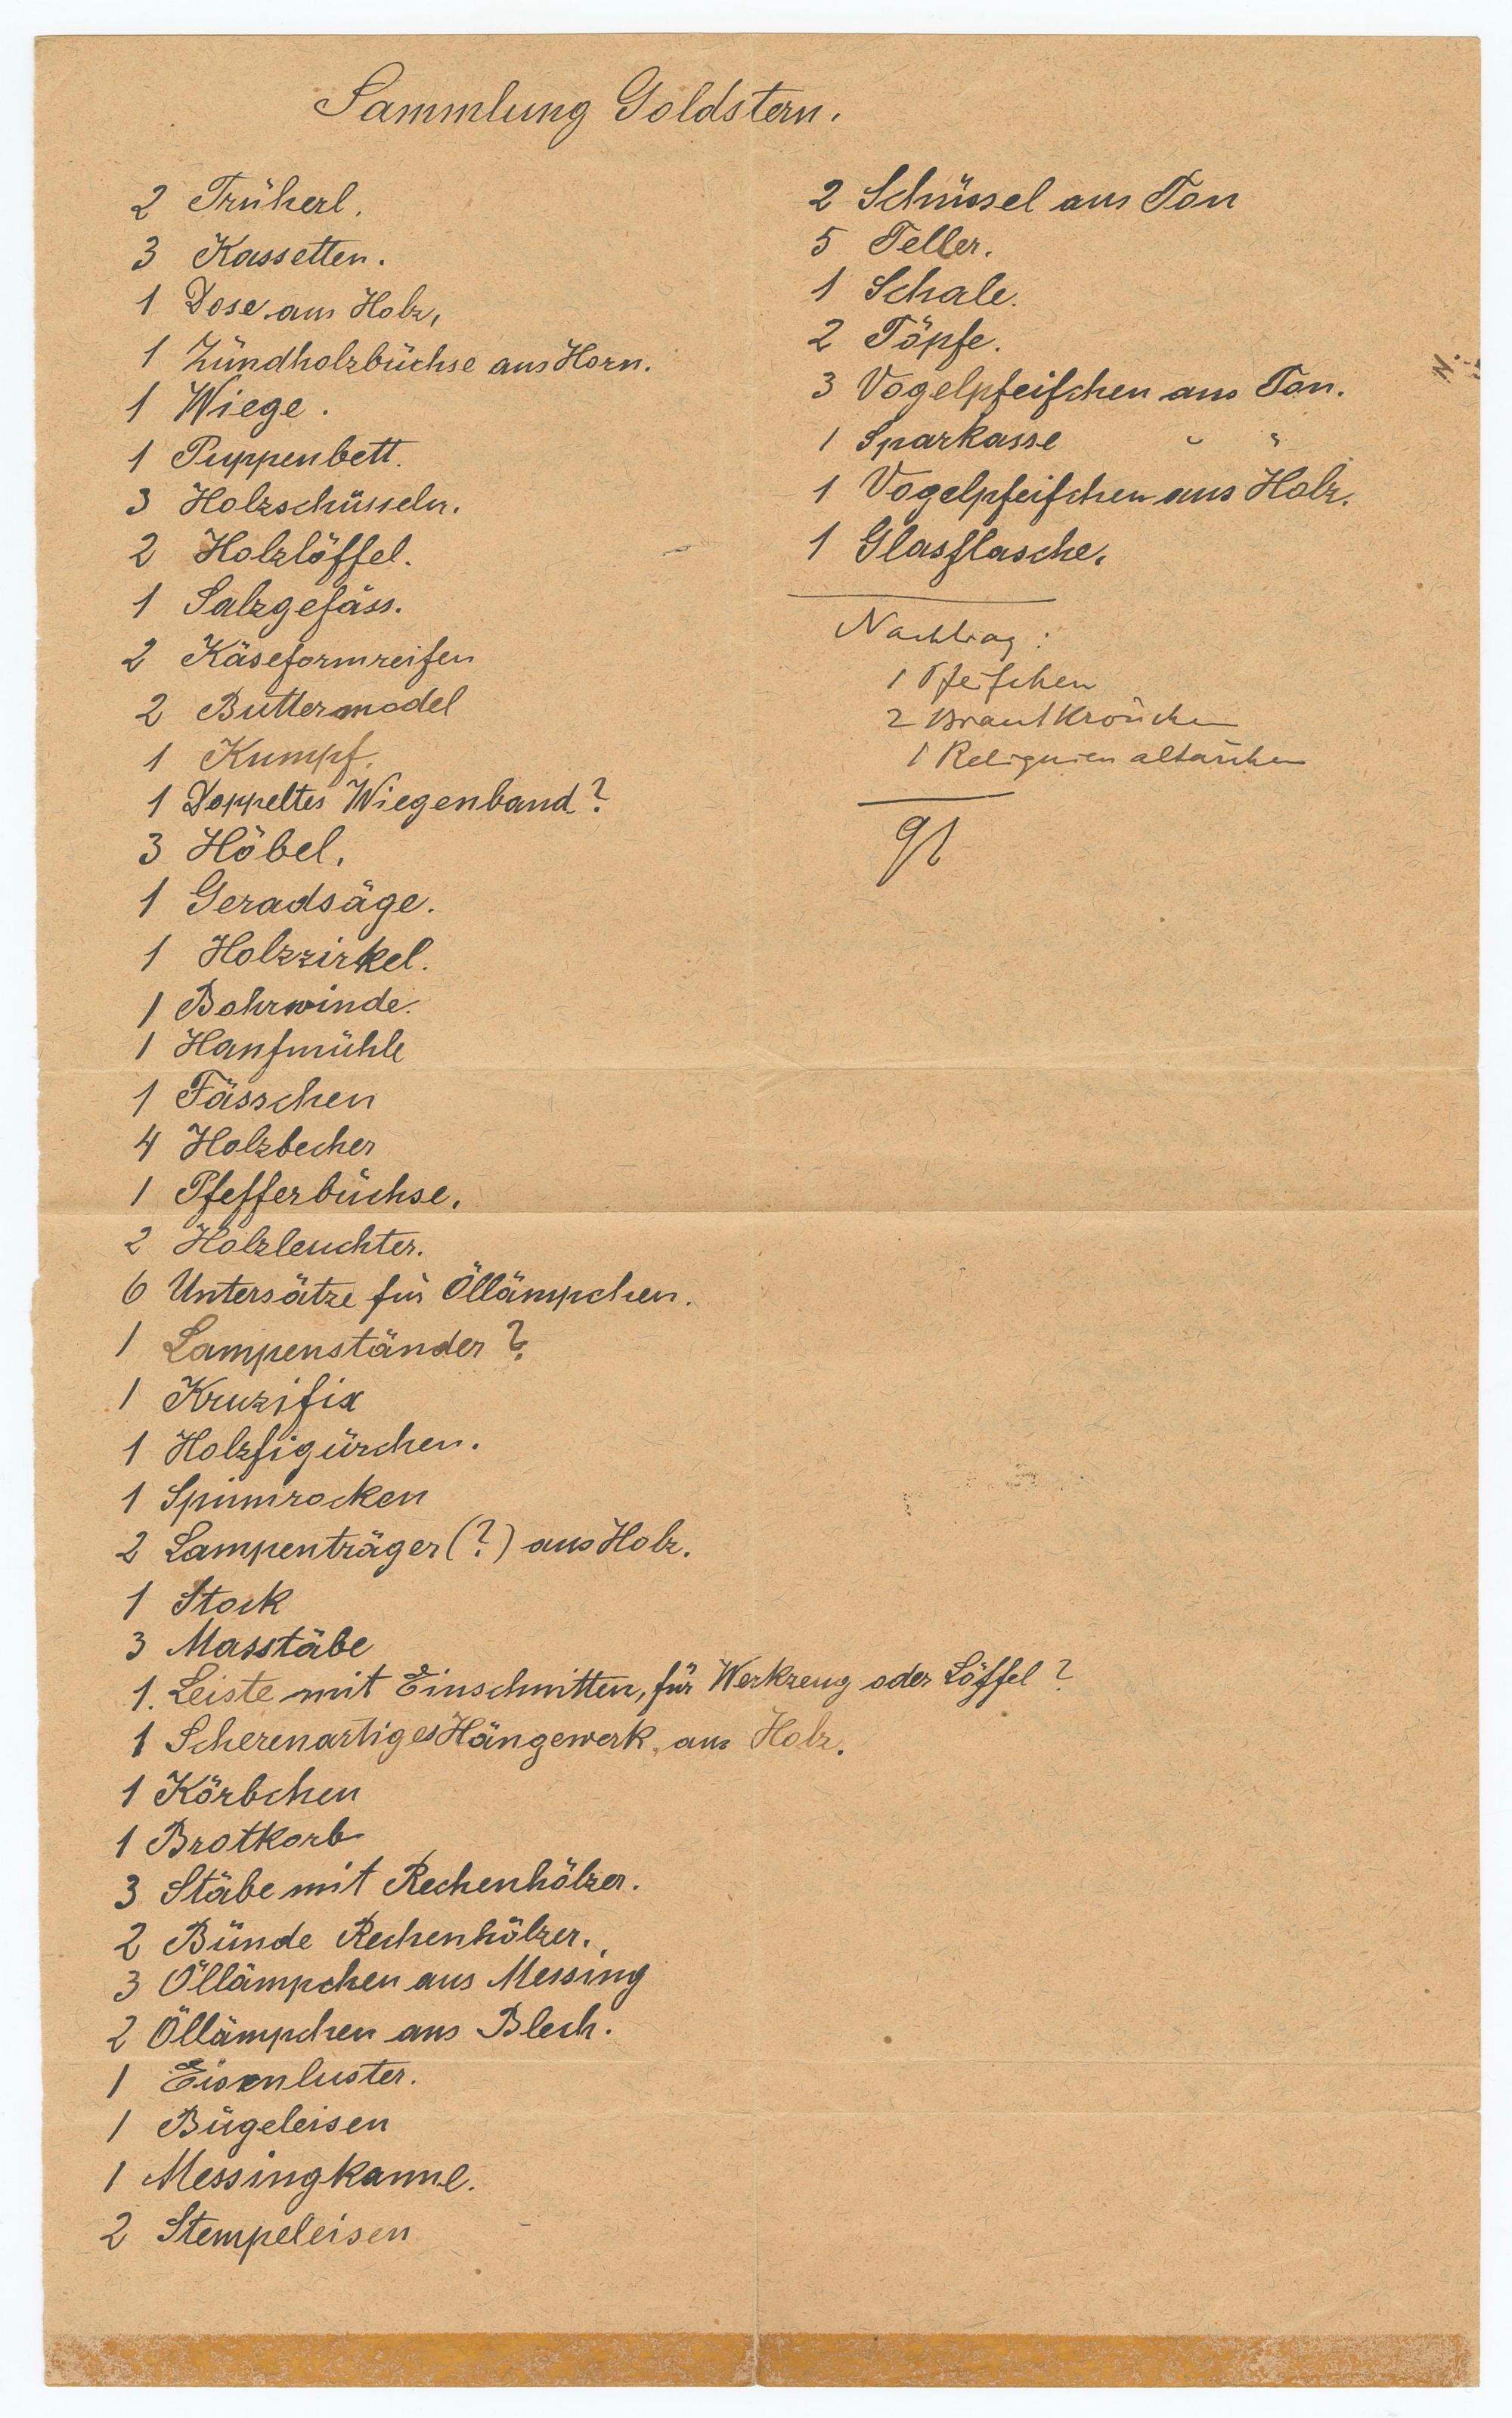 Sammlung Goldstern.
2 Trüherl.
3 Kassetten.
1 Dose aus Holz,
1 Zündholzbüchse aus Horn.
1 Wiege.
1 Puppenbett.
3 Holzschüsseln.
2 Holzlöffel.
1 Salzgefäss.
2 Käseformreifen
2 Buttermodel
1 Kumpf.
1 Doppeltes Wiegenband?
3 Höbel.
1 Geradsäge.
1 Holzzirkel.
1 Bohrwinde.
1 Hanfmühle
1 Fässchen
4 Holzbecher
1 Pfefferbüchse.
2 Holzleuchter.
6 Untersätze für Öllämpchen.
1 Lampenständer?
1 Kruzifix
1 Holzfigürchen.
1 Spinnrocken
2 Lampenträger (?) aus Holz.
1 Stock
3 Masstäbe
1. Leiste mit Einschnitten, für Werkzeug oder Löffel?
1 Scherenartiges Hängewerk aus Holz.
1 Körbchen
1 Brotkorb
3 Stäbe mit Rechenhölzer.
2 Bünde Rechenhölzer.
3 Öllämpchen aus Messing
2 Öllämpchen aus Blech.
1 Eisenluster.
1 Bügeleisen
1 Messingkanne.
2 Stempeleisen
2 Schüssel aus Ton
5 Teller.
1 Schale.
2 Töpfe.
3 Vogelpfeifchen aus Ton.
1 Sparkasse " "
1 Vogelpfeifchen aus Holz.
1 Glasflasche.
Nachtrag:
1 Pfeifchen
2 Brautkrönchen
1 Reliquienaltärchen
91